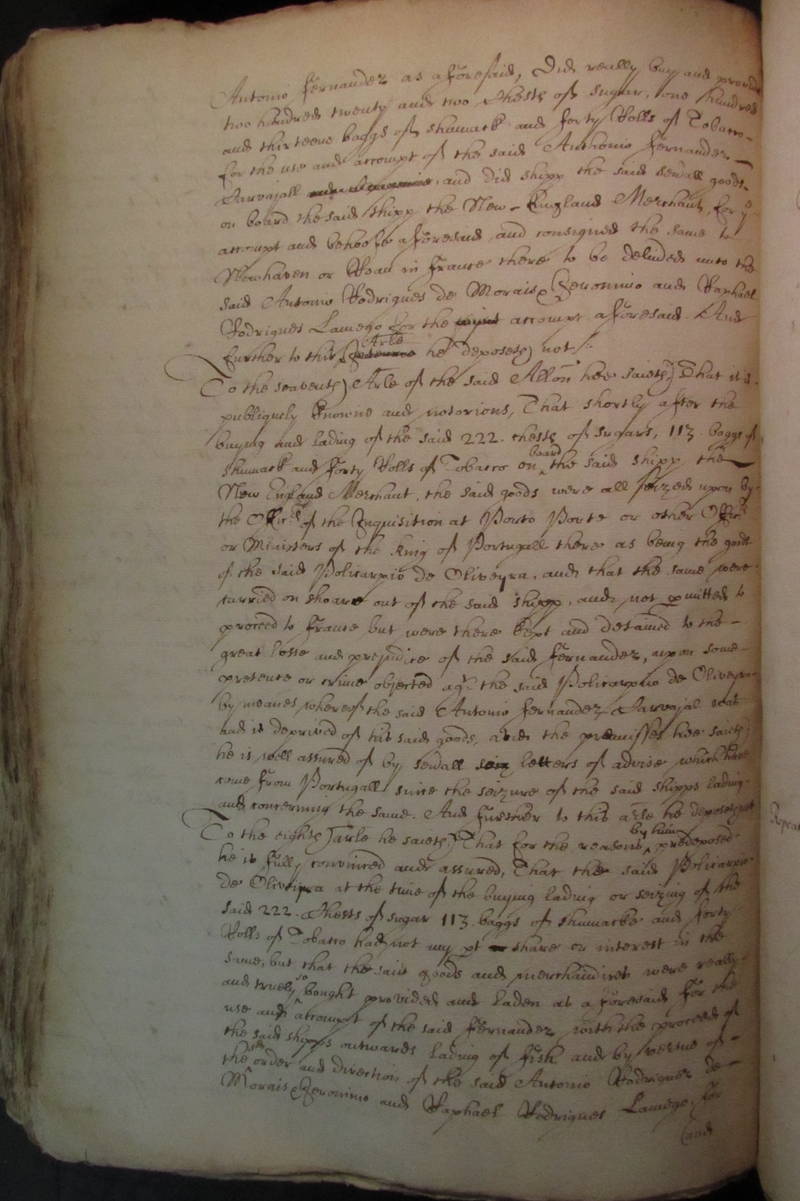 Antonio Fernandez as aforesaid, Did really buy and provide
two hundred twenty and two Chests of sugar, one hundred
and thirteene baggs of shumack and forty Rolls of Tobacco
for the use and accompt of the said Anthonio Fernandez
Carvajall and did shipp the said severall goods
on board the said shipp the New-England Merchant, for ye
accompt and behoofe aforesaid and consigned the same to
Newhaven or Roan in France there to be delivered unto the
said Antonio Rodrigues de Morais Jeronimo and Raphael
Rodrigues Lamego for the accompt aforesaid. And
further to this Arle he deposeth not /.
To the seaventh Arle of the said Allon hee saieth That it is
publiquely knowne and notorious, That shortly after the
buying and lading of the said 222. chests of sugars, 113. baggs of
shumack and forty Rolls of Tobacco on board the said shipp the
New England Merchant, the said goods were all seized upon by
the Officrs of the Inquisition at Porto Porte or other Officrs
or Ministers of the King of Portugall there as being the goods
of the said Policarpio de Oliveyra, and that the same were
carried on shoare out of the said shipp, and not pmitted to
proceed to France but were there kept and detained to the
great losse and prejudice of the said Fernandez, upon some
pretence or crime objected agt the said Policarpio de Oliveyra
by meanes whereof the said Antonio Fernandez Carvajal was
and is deprived of his said goods, all the premisses hee saieth
he is well assured of by severall letters of advice which have
come from Portugall since the seizure of the said shipps lading
and concerning the same. And further to this arle he deposeth not
To the eighth arle he saieth That for the reasons by him predeposed
he is fully convinced and assured, That the said Policarpio
de Oliveyra at the time of the buying lading or seizing of the
said 222. Chests of sugar 113. baggs of shumacke and forty
Rolls of Tobacco had not any pt share or interest in the
same, but that the said goods and merchandizes were really
and truely so bought provided and laden as aforesaid for the
use and accompt of the said Fernandez with the proceed of
the said shipps outwards lading of fish and by vertue of
the order and direction of the said Antonio Rodrigues de
Morais Jeronimo and Raphael Rodrigues Lamego, for
(and